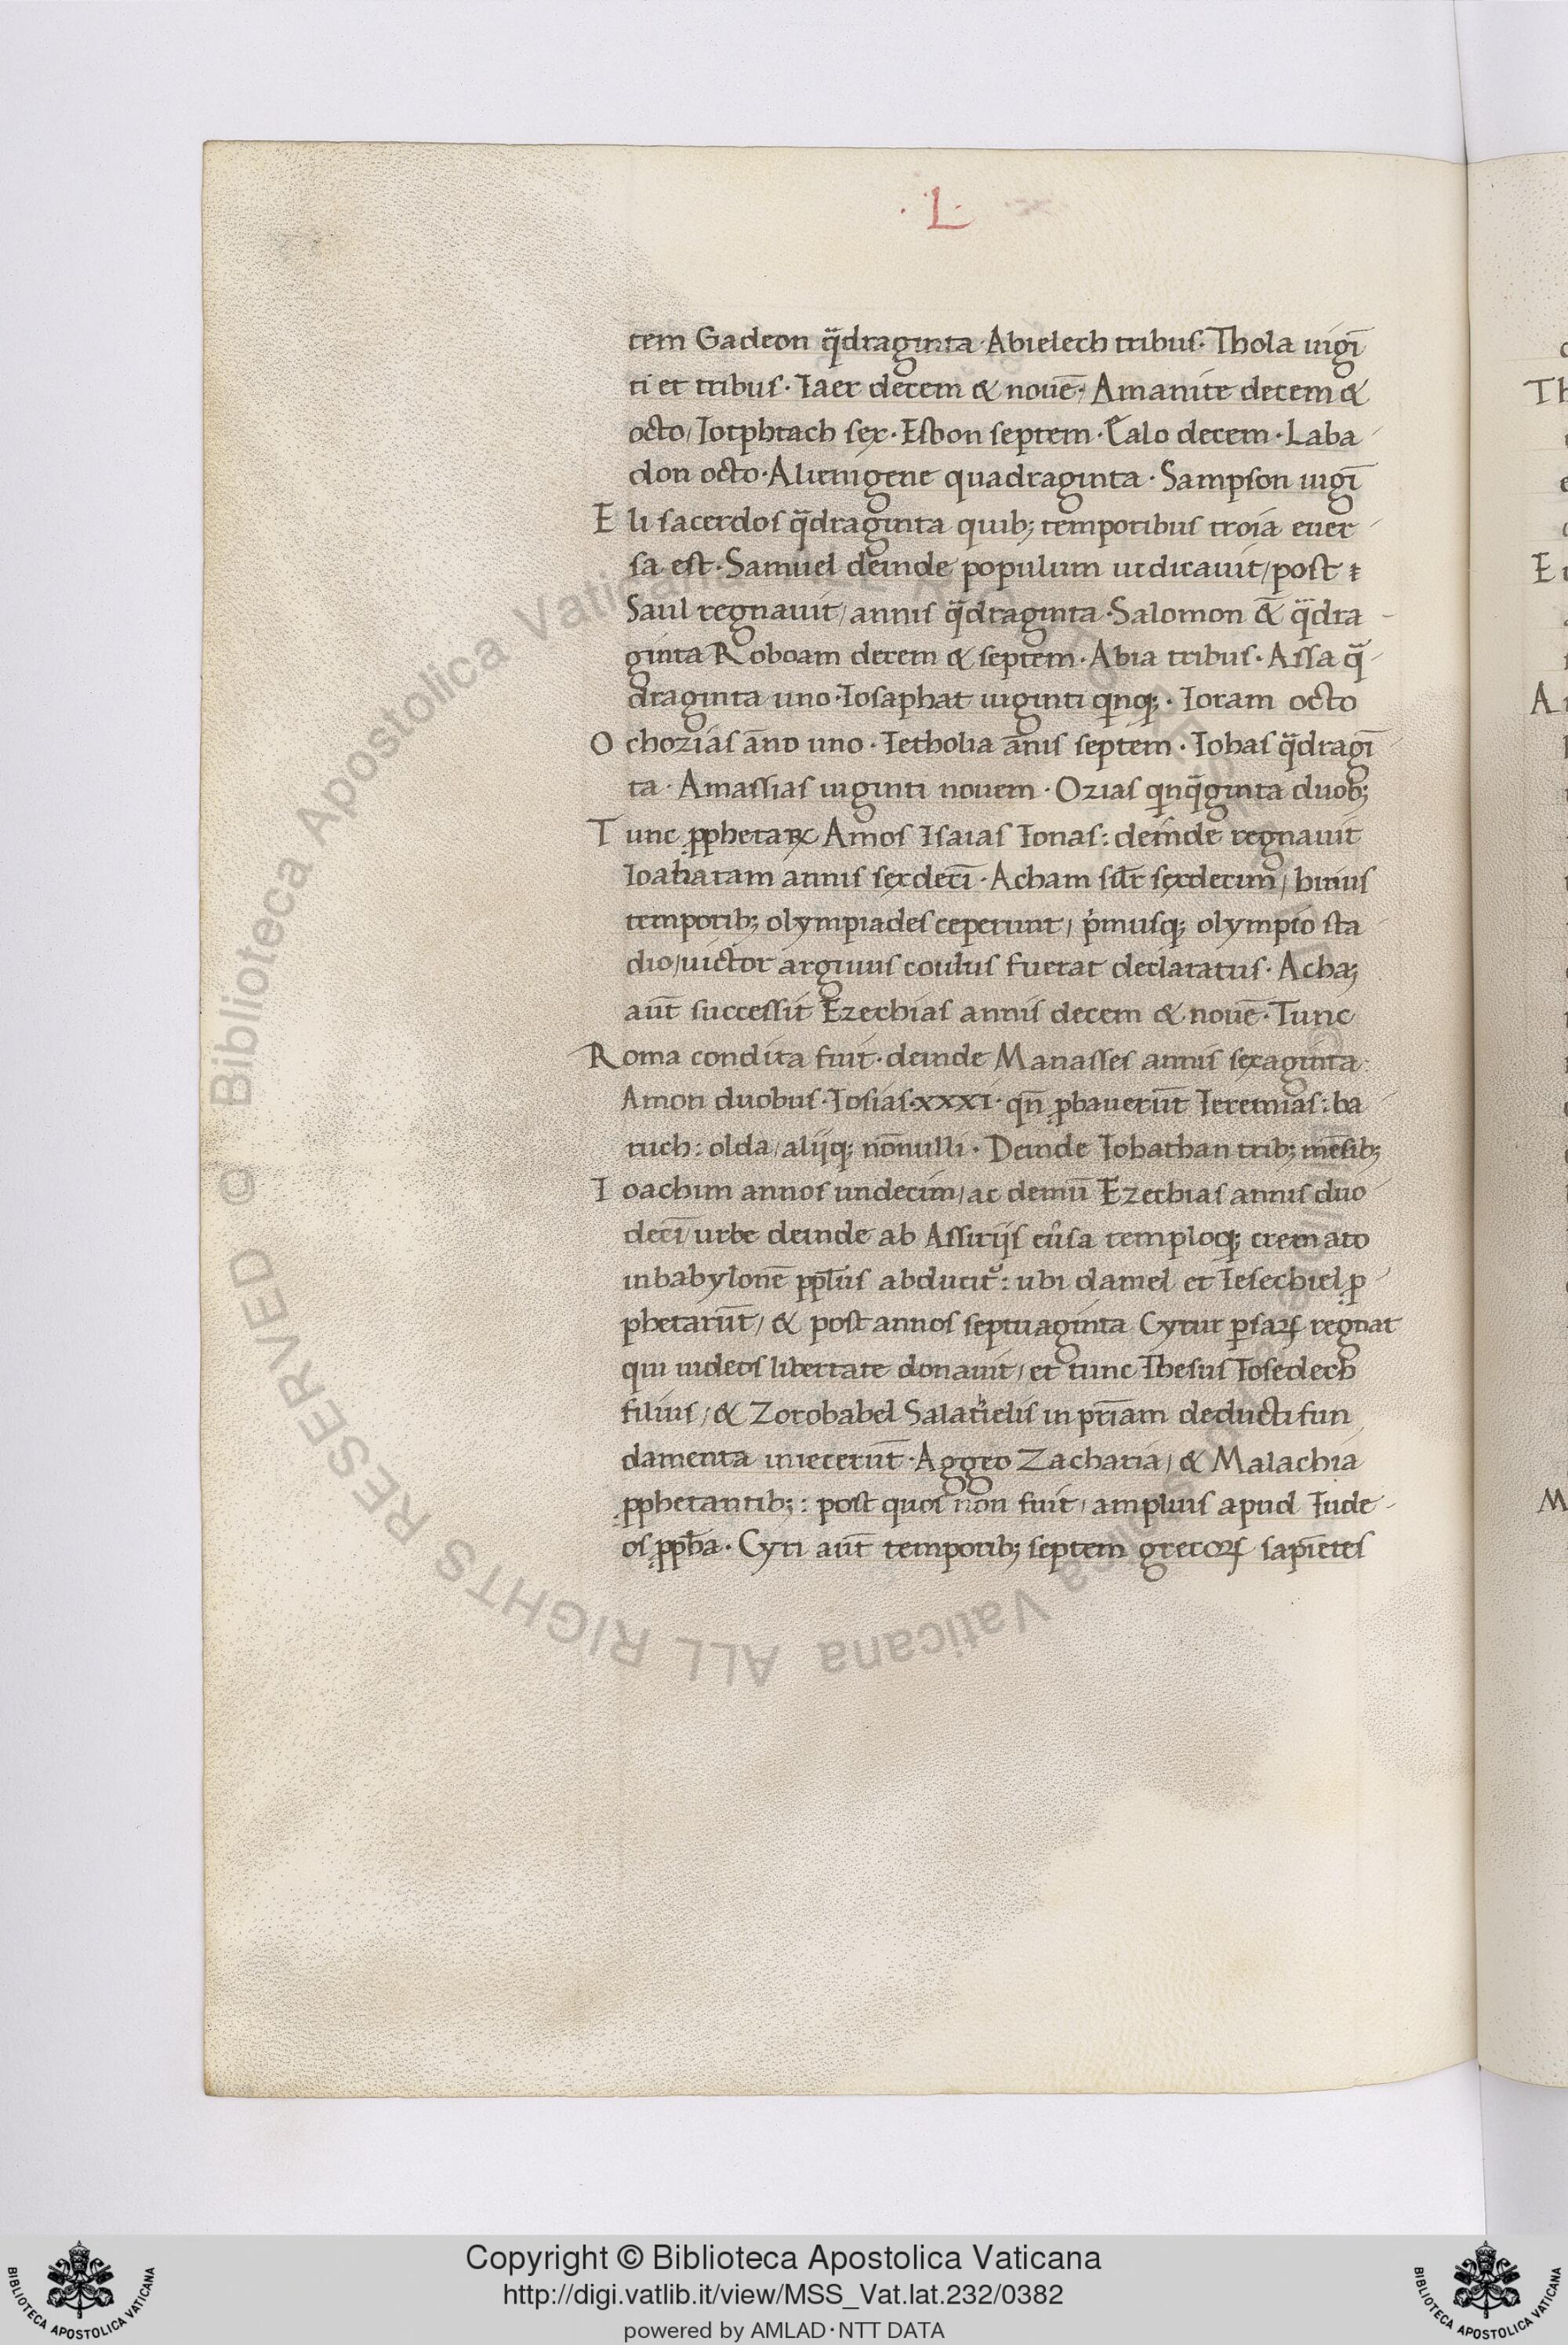 · L ·
tem Gadeon q̈draginta · Abielech tribus · Thola uigī
ti et tribus · Iaer decem & nouē · Amanite decem &
octo / Iotphtach sex · Esbon septem · Ealo decem · Laba
don octo · Alienigene quadraginta · Sampson uigī
Eli sacerdos q̈draginta quib; temporibus troia euer
sa est · Samuel deinde populum iudicauit / post
Saul regnauit / annis q̈draginta · Salomon & q̈dra
ginta Roboam decem & septem · Abia tribus · Assa q̈
draginta uno · Iosaphat uiginti qinq; · Ioram octo
Ochozias āno uno · Ietholia ānis septem · Iohas q̈dragī
ta · Amassias uiginti nouem · Ozias qinq̈ginta duob;
Tunc ꝓphetaꝝ Amos Isaias Ionas : deinde regnauit
Ioaharam annis sexdecī · Acham silr sexdecim / huius
temporib; olympiades ceperunt / pimusq; olympio sta
dio / uictor argiuus coulus fuerat declaratus · Acha;
aūt successit Ezechias annis decem & nouē · Tunc
Roma condita fuit · deinde Manasses annis sexaginta
Amon duobus · Iosias · xxxi · qn̄ ꝓbauerūt Ieremias : ba
ruch : olda / alijq; nōnulli · Deinde Iohathan trib; mēsib;
Ioachim annos undecim / ac demū Ezechias annis duo
decī / urbe deinde ab Assirijs eu͛sa temploq; cremato
in babylonē ppl̄us abducit᷑ : ubi daniel et Iesechiel ꝓ
phetarūt / & post annos septuaginta Cyrur ꝑsaꝝ regnat
qui iudeos libertate donauit / et tunc Ihesus Iosedech
filius / & Zorobabel Salatielis in pr̄iam deducti fun
damenta iniecerūt · Aggeo Zacharia / & Malachia
ꝓphetantib; : post quos non fuit / amplius apud Iude
os ꝓpħa · Cyri aūt temporib; septem grecoꝝ sapīetes
Th
E
A
M
© Biblioteca Apostolica Vaticana ALL RIGHTS RESERVED
Copyright © Biblioteca Apostolica Vaticana
http://digi.vatlib.it/view/MSS_Vat.lat.232/0382
powered by AMLAD·NTT DATA
BIBLIOTECA APOSTOLICA VATICANA
BIBLIOTECA APOSTOLICA VATICANA